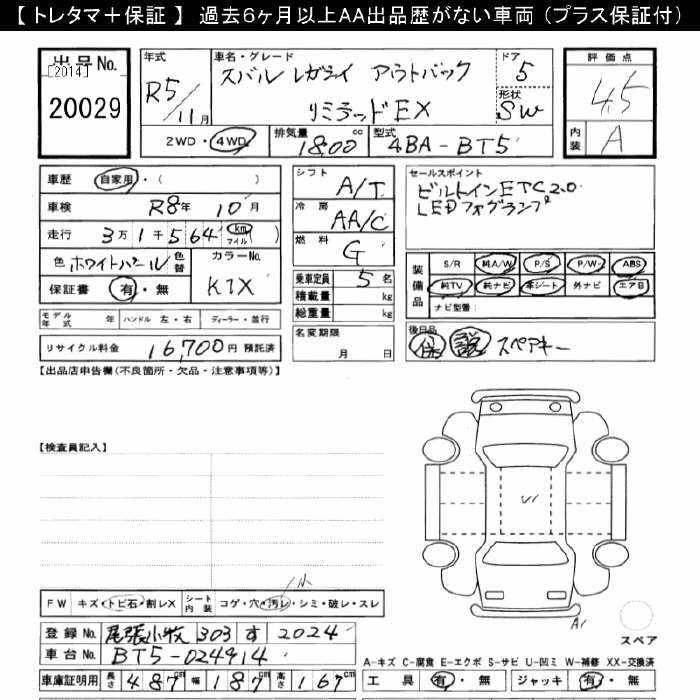 【 トレタマ＋保証 】 過去6ヶ月以上AA出品歴がない車両 （プラス保証付）
出品No.
[2014]
20029
年式
R5/11月
車名・グレード
スバル レガシイ アウトバック
リミテッドEX
ドア
5
形状
SW
評価点
4.5
内装
A
2WD・4WD
排気量
1800cc
型式
4BA-BT5
車歴 自家用・( )
車検 R8年 10月
走行 3万1千564 km マイル )
色 ホワイトパール 色替
カラーNo.
K1X
保証書 有・無
シフト
A/T
冷房
AA/C
燃料
G
乗車定員 5名
積載量 kg
総重量 kg
名変期限
月 日
セールスポイント
ビルトインETC2.0
LEDフォグランプ
装備品
S/R 純A/W P/S P/W ABS
純TV 純ナビ 革シート 外ナビ エアB
ナビ型番:
モデル年式 年 ハンドル 左・右 ディーラー・並行
リサイクル料金 16,700円 預託済
後日品
保 説 スペアキー
【出品店申告欄(不良箇所・欠品・注意事項等)】
【検査員記入】
V1
小
FW キズ・トビ石・割レX シート内装 コゲ・穴・汚レ・シミ・破レ・スレ
A1
スペア
登録No. 尾張小牧 303 す 2024
車台No. BT5-024914
A-キズ C-腐食 E-エクボ S-サビ U-凹ミ W-補修 XX-交換済
車庫証明用 長さ 487cm 幅 187cm 高さ 167cm
工具 有・無 ジャッキ 有・無